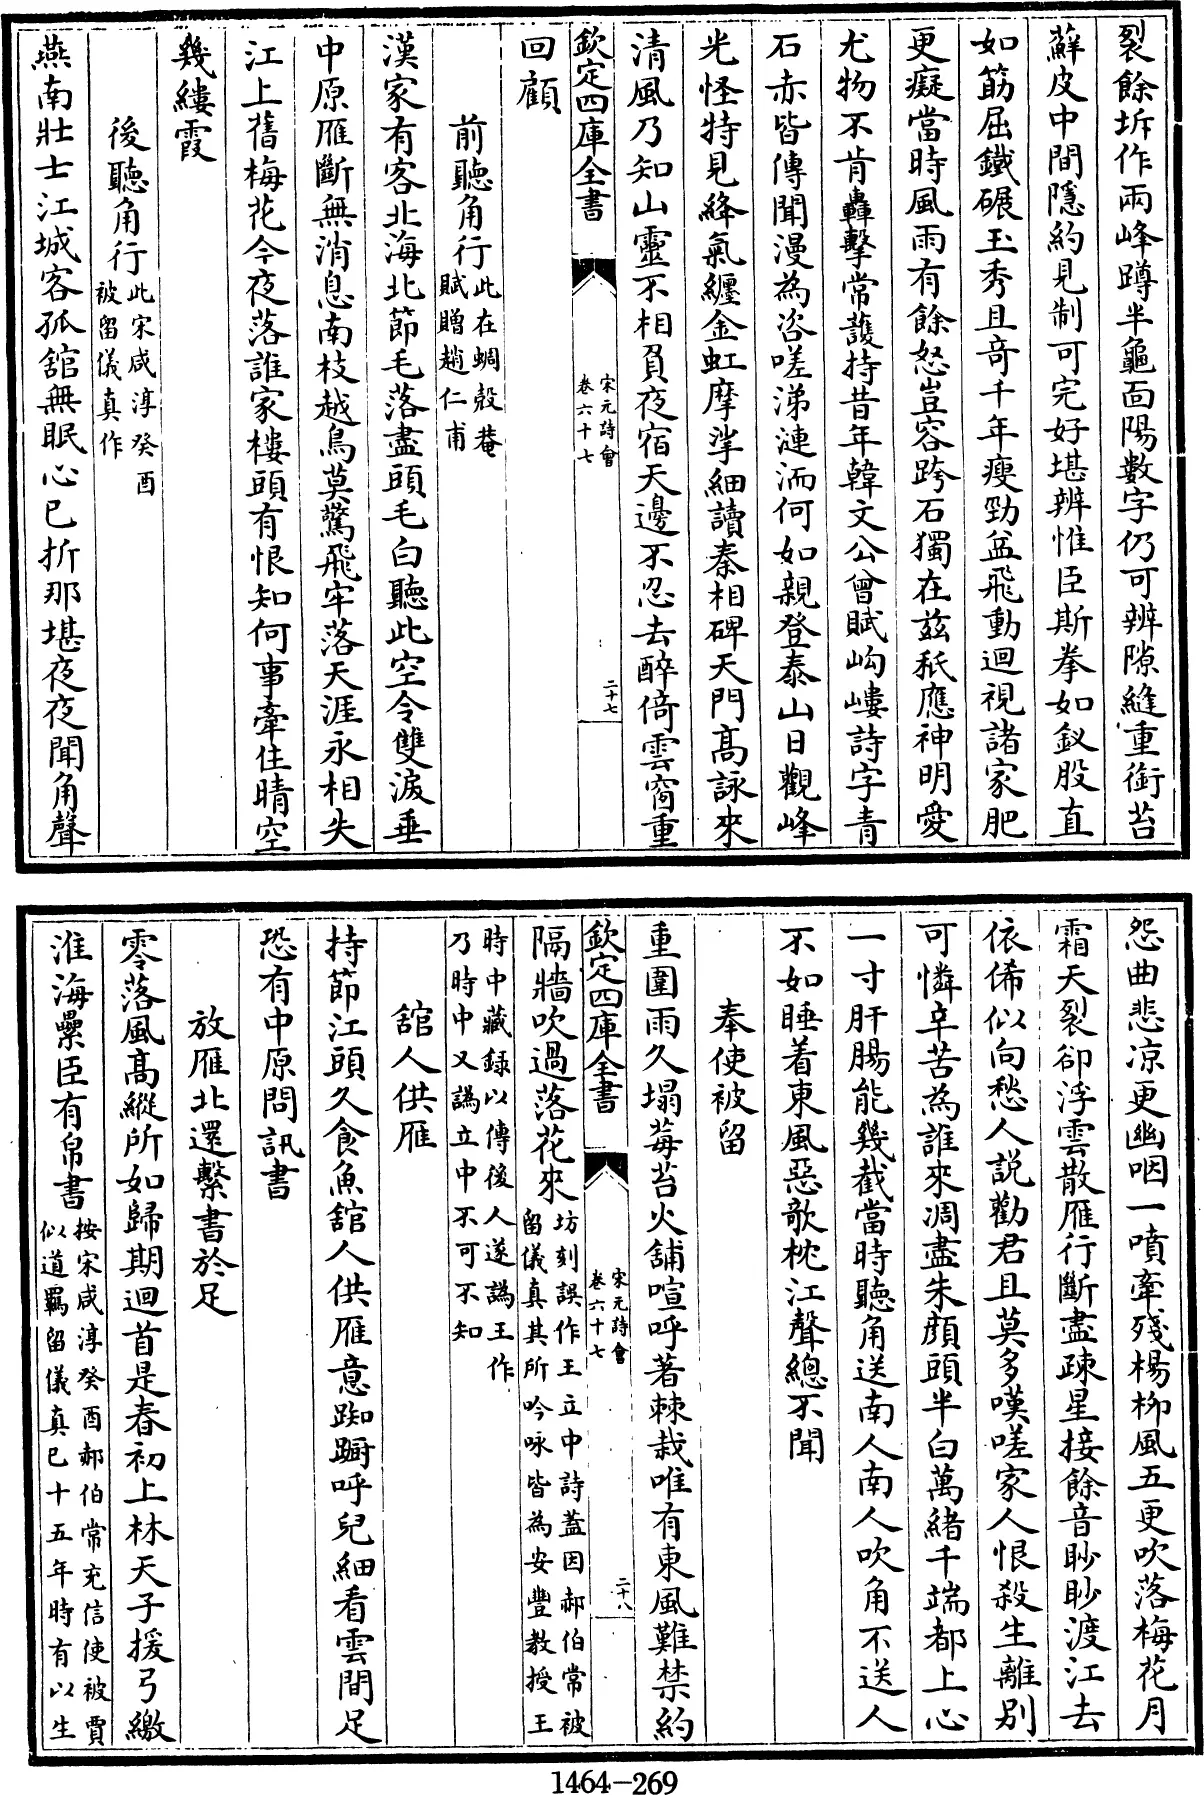 裂餘坼作兩峰蹲半龜面陽數字仍可辨隙縫重銜苔
蘚皮中間隱約見制可完好堪辨惟臣斯拳如釵股直
如筯屈鐵碾玉秀且竒千年瘦勁益飛動迴視諸家肥
更癡當時風雨有餘怒豈容跨石獨在兹秖應神明愛
尤物不肯轟擊常䕶持昔年韓文公曾賦岣嶁詩字青
石赤皆傳聞漫為咨嗟涕漣洏何如親登泰山日觀峰
光怪特見絳氣纏金虹摩挲細讀秦相碑天門髙詠來
清風乃知山靈不相負夜宿天邊不忍去醉倚雲窗重
欽定四庫全書
宋元詩會
卷六十七
二十七
回顧
前聽角行此在蜩殼菴
賦贈趙仁甫
漢家有客北海北節毛落盡頭毛白聽此空令雙淚垂
中原雁斷無消息南枝越鳥莫驚飛牢落天涯永相失
江上舊梅花今夜落誰家樓頭有恨知何事牽住晴空
幾縷霞
後聽角行此宋咸淳癸酉
被留儀真作
燕南壯士江城客孤舘無眠心已折那堪夜夜聞角聲
怨曲悲凉更幽咽一噴牽殘楊栁風五更吹落梅花月
霜天裂卻浮雲散雁行斷盡疎星接餘音眇眇渡江去
依俙似向愁人説勸君且莫多嘆嗟家人恨殺生離别
可憐辛苦為誰來凋盡朱顔頭半白萬緒千端都上心
一寸肝腸能幾截當時聽角送南人南人吹角不送人
不如睡着東風惡欹枕江聲總不聞
奉使被留
重圍雨久塌莓苔火舖喧呼著棘栽唯有東風難禁約
欽定四庫全書
宋元詩會
卷六十七
二十八
隔牆吹過落花來坊刻誤作王立中詩葢因郝伯常被
留儀真其所吟咏皆為安豐教授王
時中藏録以傳後人遂譌王作
乃時中又譌立中不可不知
舘人供雁
持節江頭久食魚舘人供雁意踟蹰呼兒細看雲間足
恐有中原問訊書
放雁北還繫書於足
零落風髙縱所如歸期迴首是春初上林天子援弓繳
淮海纍臣有帛書按宋咸淳癸酉郝伯常充信使被賈
似道羈留儀真已十五年時有以生
1464—269